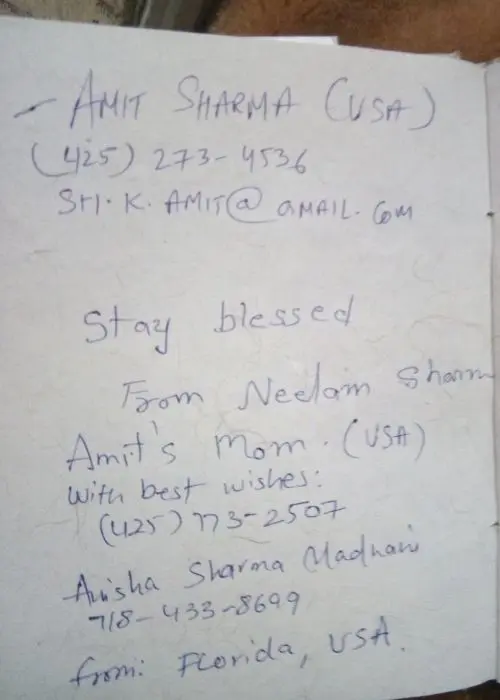 - AMIT SHARMA (USA)
(425) 273-4536
SHI.K.AMIT@GMAIL.COM
Stay blessed
From Neelam Sharm
Amit's Mom. (USA)
With best wishes:
(425) 773-2507
Anisha Sharma Madnani
718-433-8699
from: Florida, USA.